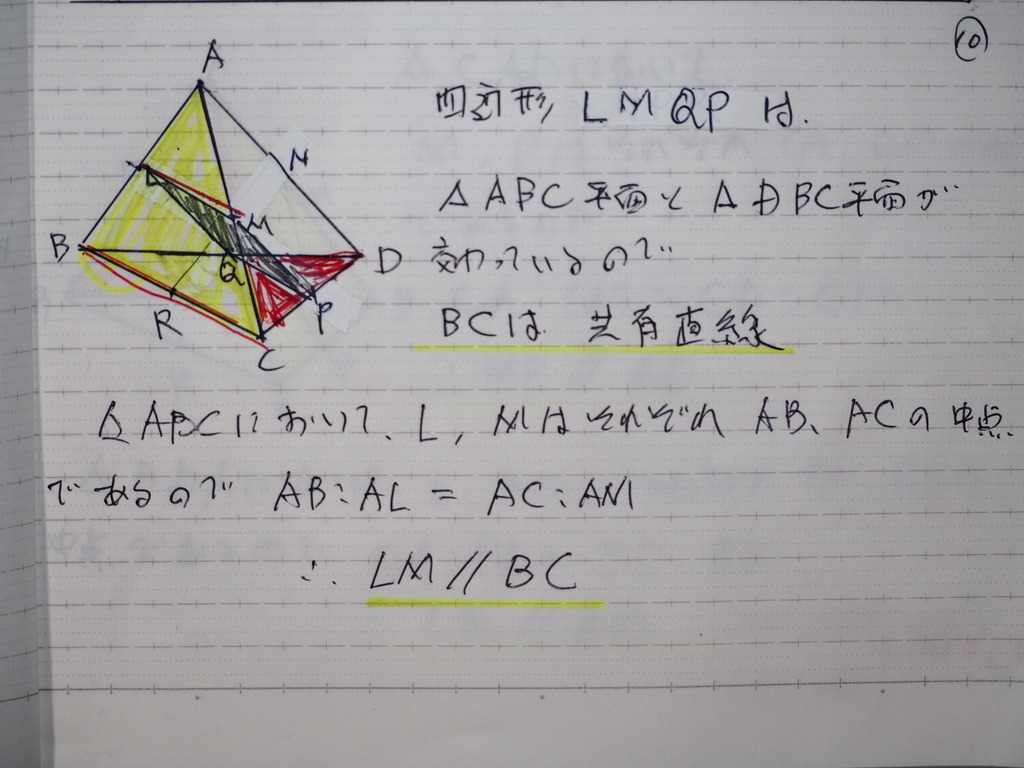 ⑩
A
N
M
B
Q
D
R
P
C
四辺形 LMQPは.
△ABC平面と△DBC平面が
交わっているので
BCは 共有直線
△ABCにおいて、L, Mはそれぞれ AB、ACの中点
であるので AB:AL = AC:AM
∴ LM // BC